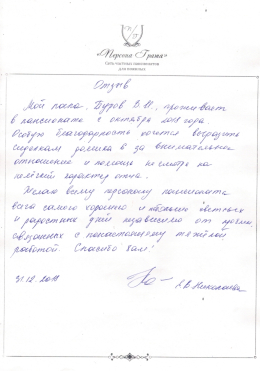 «Персона Грата»
Сеть частных пансионатов
для пожилых
Отзыв
Мой папа, В.И., проживает
в пансионате с октября 2018 года.
Особую благодарность хочется выразить
сиделкам домика 2 за внимательное
отношение и помощь не смотря на
нелёгкий характер отца.
Желаю всему персоналу пансионата
всего самого хорошего и побольше светлых
и радостных дней независимо от проблем
связанных с понастоящему тяжёлой
работой. Спасибо Вам!
31.12.2018